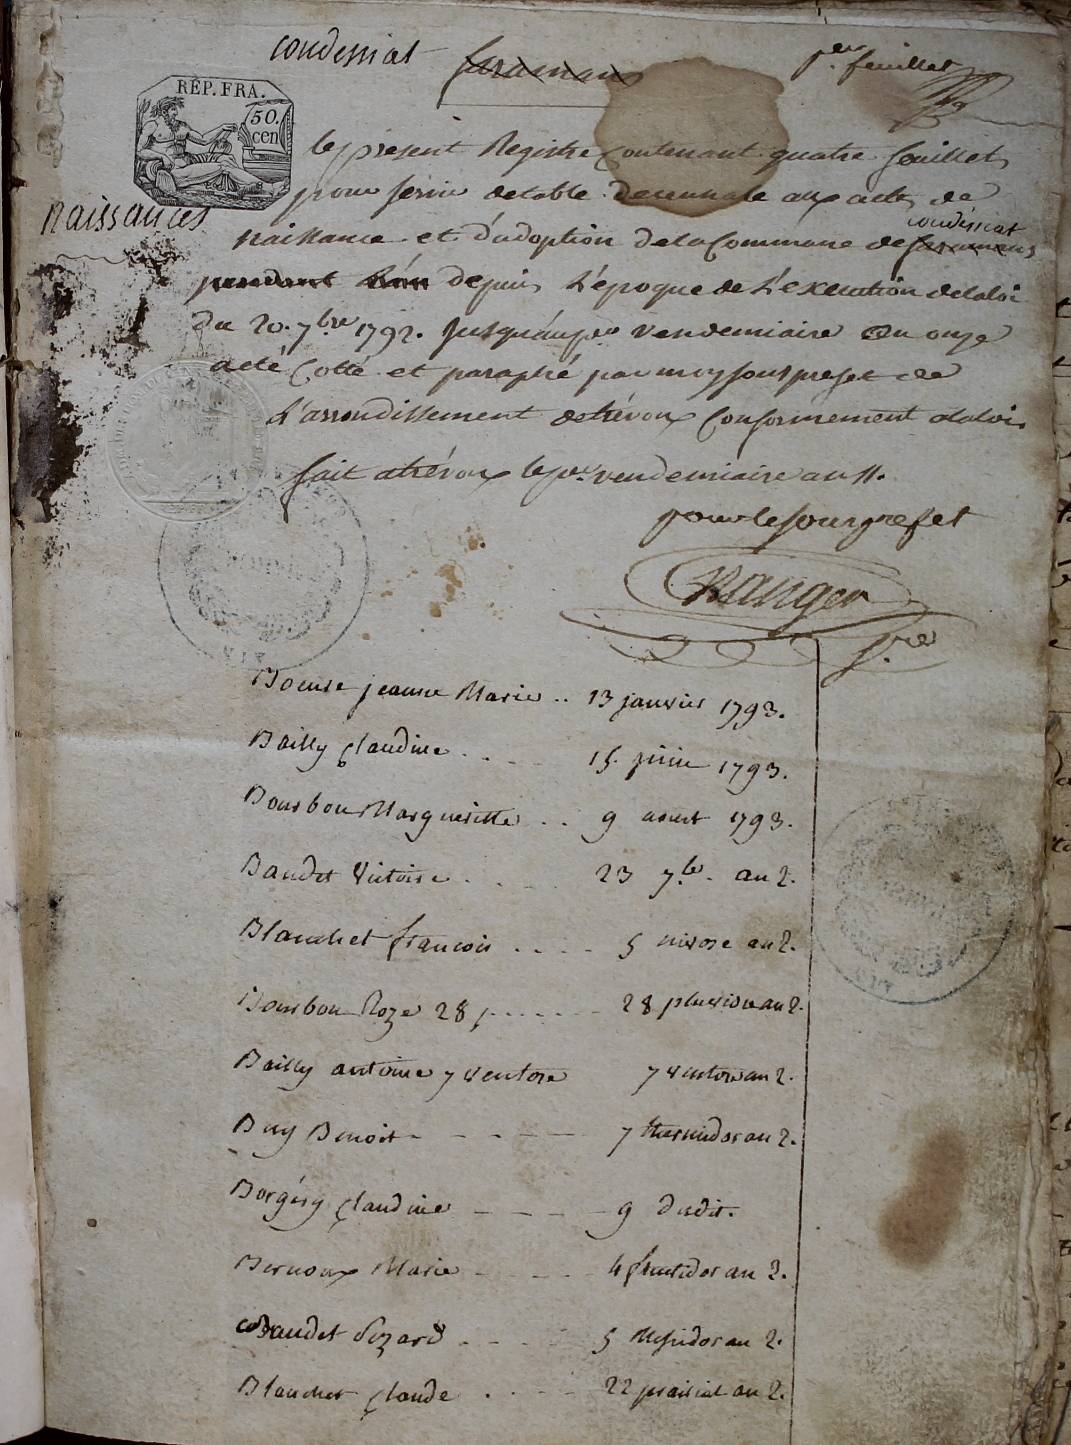 condessiat faramans per feuillet
RÉP. FRA.
50.
cen
le present Registre Contenant quatre feuillets
pour servir de table decennale aux actes de
naissances
condéssiat
naissance et d'adoption de la Commune de faramans
pendant depuis L'époque de L'execution de la loi
du 20. 7bre 1792. Jusqu'au per vendemiaire an onze
a eté Cotté et paraphé par moy sous prefet de
L'arrondissement de trévoux Conformement a la loi.
fait a trévoux le per vendemiaire an 11.
pour le sous prefet
Ranger
Boeuse jeanne Marie .. 13 janvier 1793.
Bailly Claudine . . . . 15 juin 1793.
Bourbon Margueritte . . 9 aoust 1793.
Baudet Victoire . . . . 23 7bre. an 2.
Blanchet francois . . . . 5 nivose an 2.
Bourbon Roze 28 p . . . . . . 28 pluviose an 2.
Bailly antoine 7 ventose 7 ventose an 2.
Buy Benoit - - - - - 7 thermidor an 2.
Borgéry Claudine - - - - 9 dudit.
Bernoux Marie - - - - 4 fructidor an 2.
Baudet Lozard - - - - 5 Messidor an 2.
Blanchet Claude . . . . 22 prairial an 2.